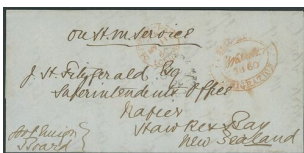 On H. M. Service
J. H. Fitzgerald Esq
Superintendents Office
Napier
Hawkes Bay
New Zealand
Board